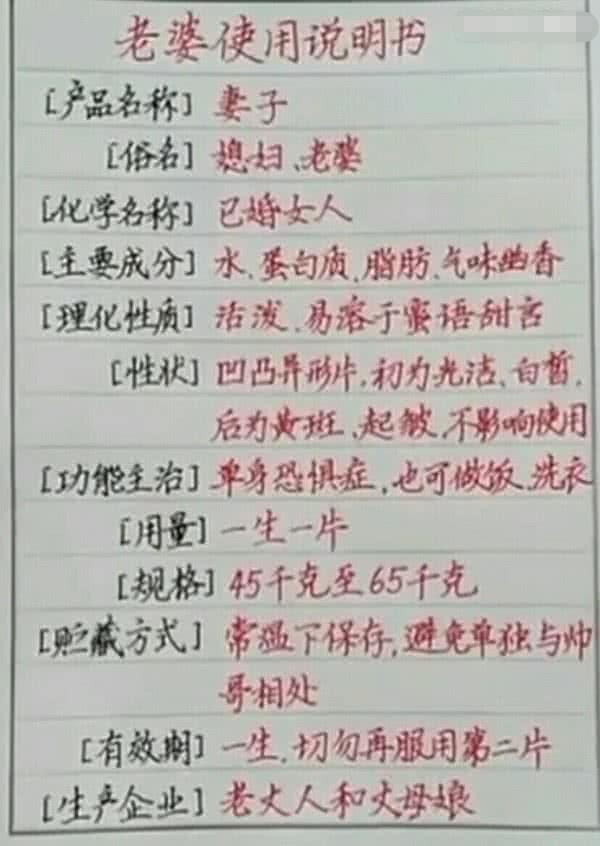 老婆使用说明书
[产品名称] 妻子
[俗名] 媳妇、老婆
[化学名称] 已婚女人
[主要成分] 水、蛋白质、脂肪、气味幽香
[理化性质] 活泼、易溶于蜜语甜言
[性状] 凹凸异形片,初为光洁、白皙,
后为黄斑、起皱,不影响使用
[功能主治] 单身恐惧症,也可做饭、洗衣
[用量] 一生一片
[规格] 45千克至65千克
[贮藏方式] 常温下保存,避免单独与帅
哥相处
[有效期] 一生,切勿再服用第二片
[生产企业] 老丈人和丈母娘